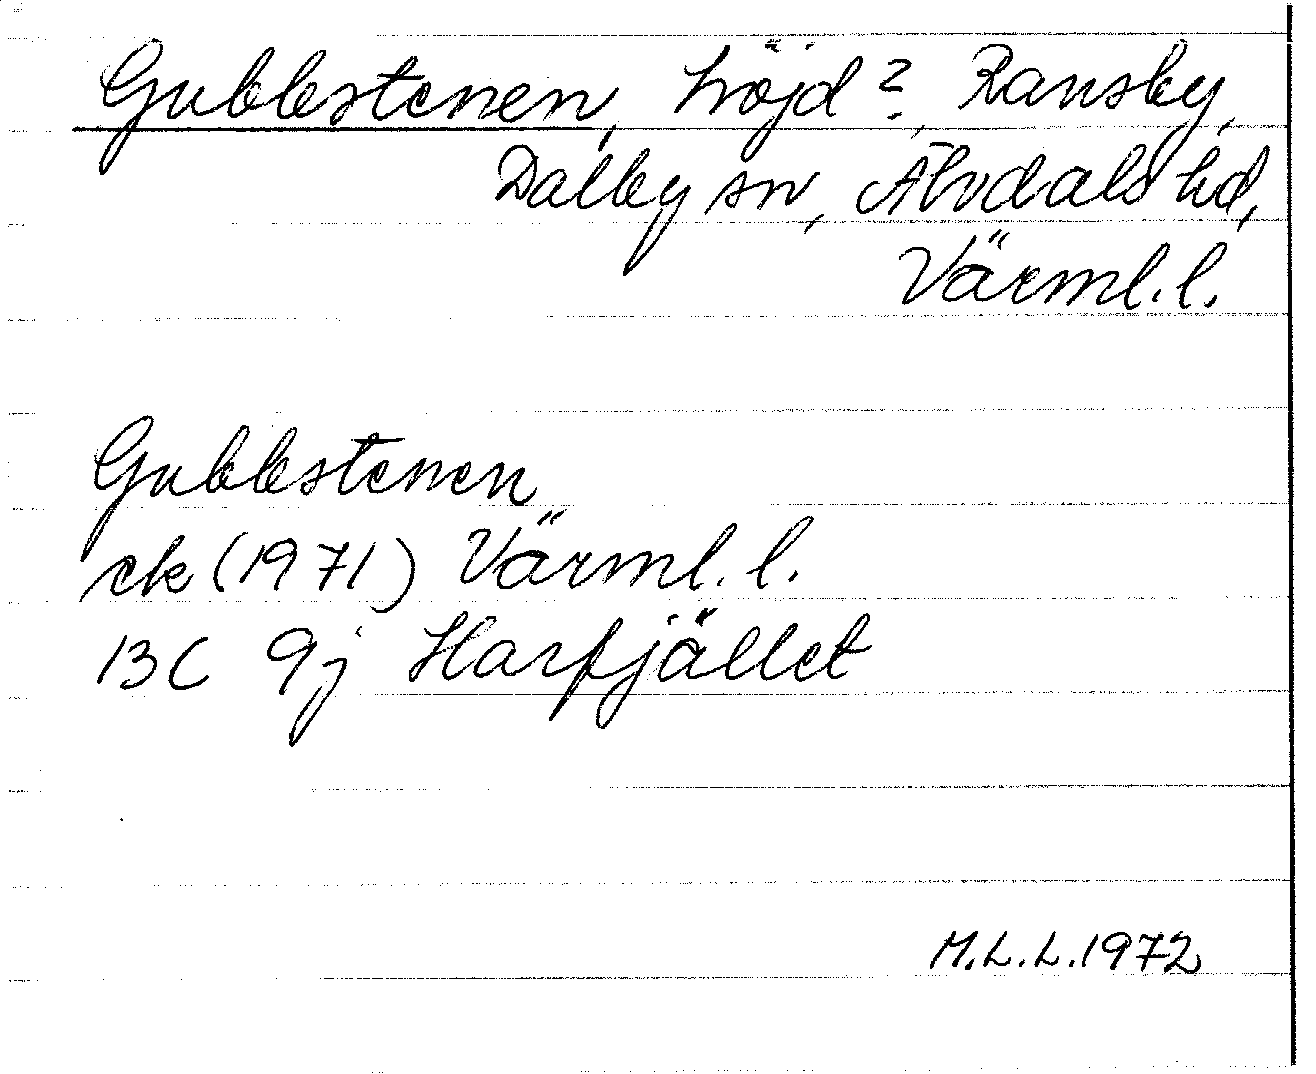 Gubbstenen, höjd?, Ransby,
Dalby sn, Älvdals hd,
Värml.l.
Gubbstenen
ek (1971) Värml.l.
13C 9j Harfjället
M.L.L.1972